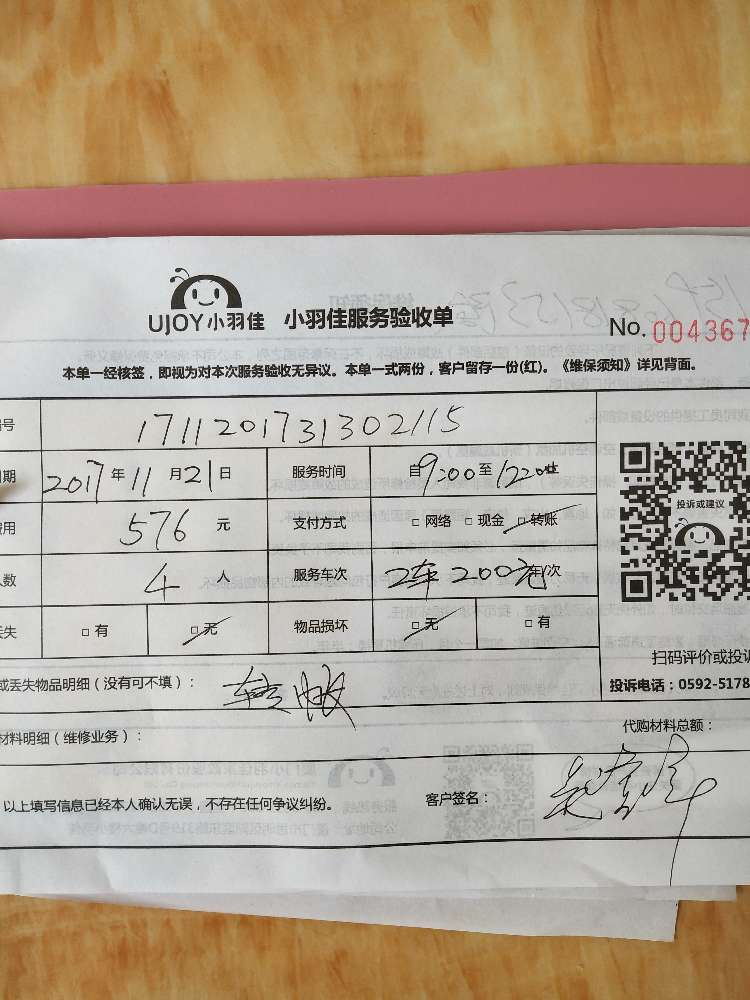 UJOY小羽佳 小羽佳服务验收单
No. 004367
本单一经核签，即视为对本次服务验收无异议。本单一式两份，客户留存一份(红)。《维保须知》详见背面。
号 1711201731302115
期 2017年11月21日 服务时间 自9:00至12:00止
用 576元 支付方式 □ 网络 □ 现金 □ 转账
人数 4人 服务车次 2车200元车/次
丢失 □ 有 □ 无 物品损坏 □ 无 □ 有
投诉或建议
扫码评价或投诉
投诉电话：0592-5178
或丢失物品明细（没有可不填）： 转账
材料明细（维修业务）：
代购材料总额：
以上填写信息已经本人确认无误，不存在任何争议纠纷。
客户签名：